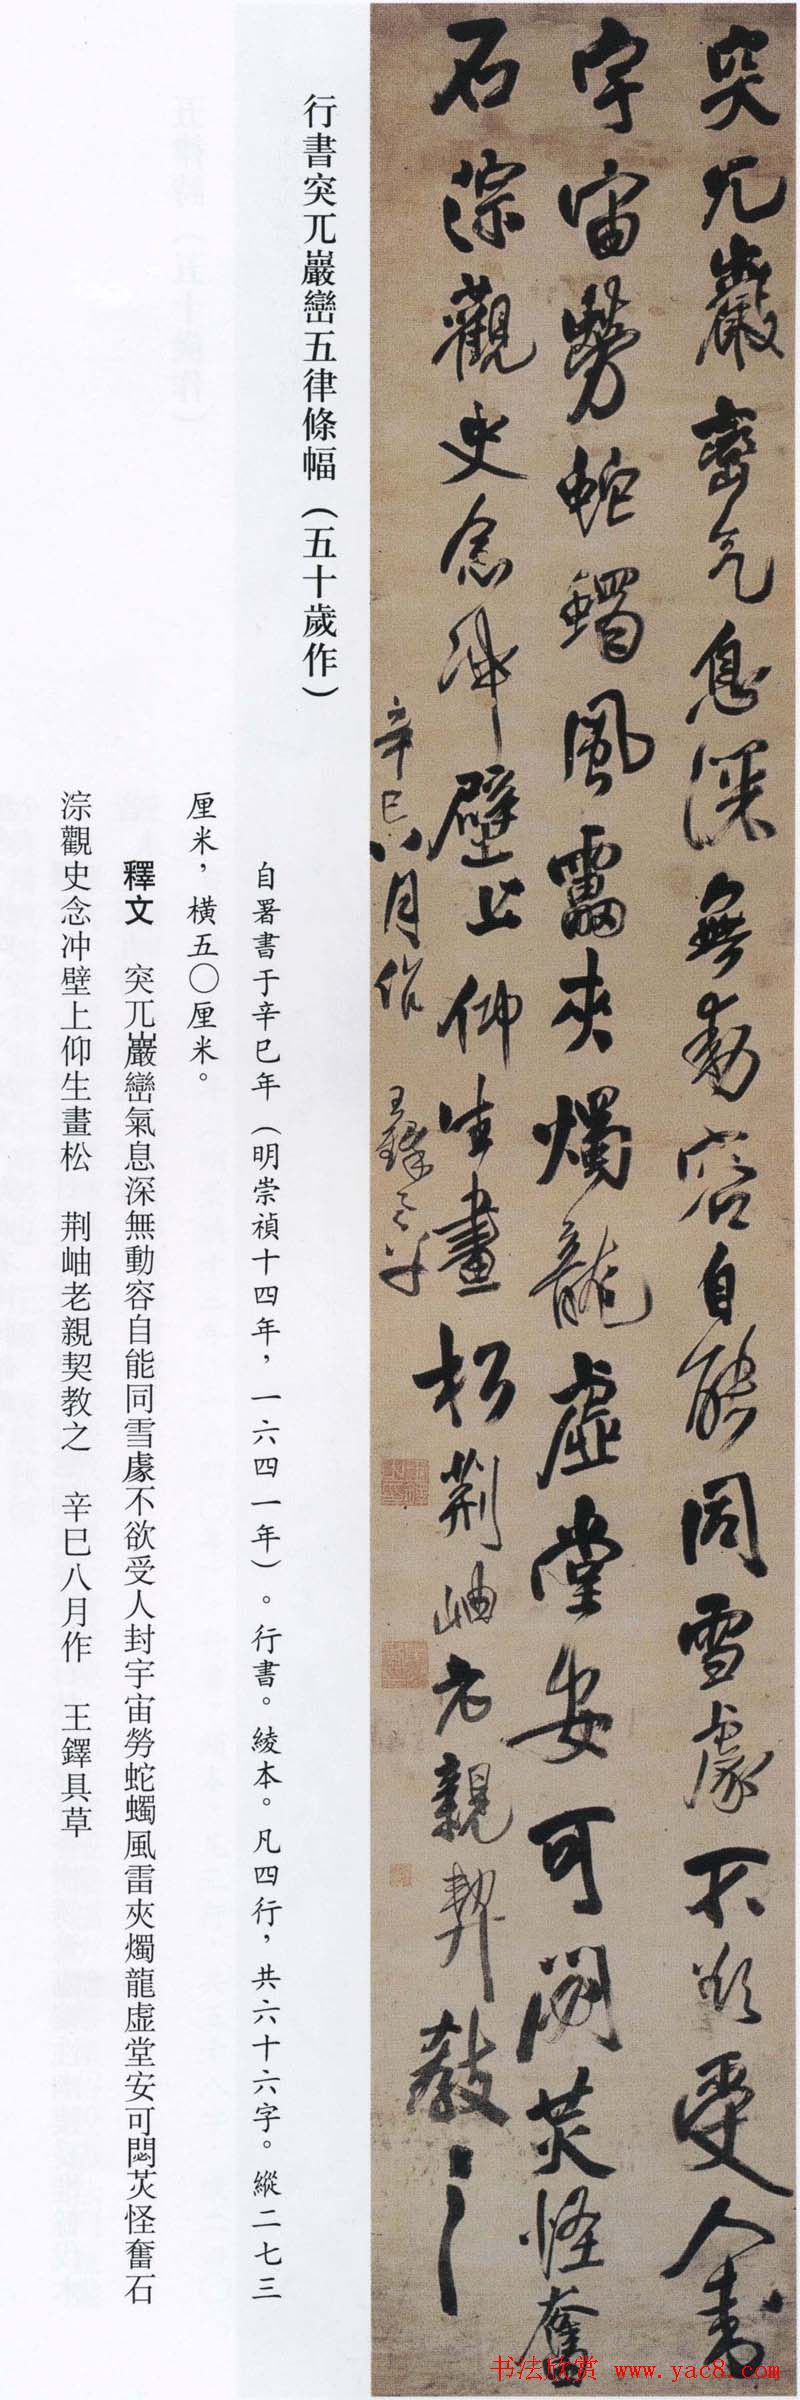 突兀巖巒氣息深無動容自能同雪處不欲受人封
宇宙勞蛇蠋風雷夾燭龍虛堂安可閟芡怪奮
石淙觀史念冲壁上仰生畫松荆岫老親契教之
辛巳八月作 王鐸具草
行書突兀巖巒五律條幅（五十歲作）
自署書于辛巳年（明崇禎十四年，一六四一年）。行書。綾本。凡四行，共六十六字。縱二七三
厘米，橫五〇厘米。
釋文 突兀巖巒氣息深無動容自能同雪處不欲受人封宇宙勞蛇蠋風雷夾燭龍虛堂安可閟芡怪奮石
淙觀史念冲壁上仰生畫松 荆岫老親契教之 辛巳八月作 王鐸具草
书法欣赏 www.yac8.com